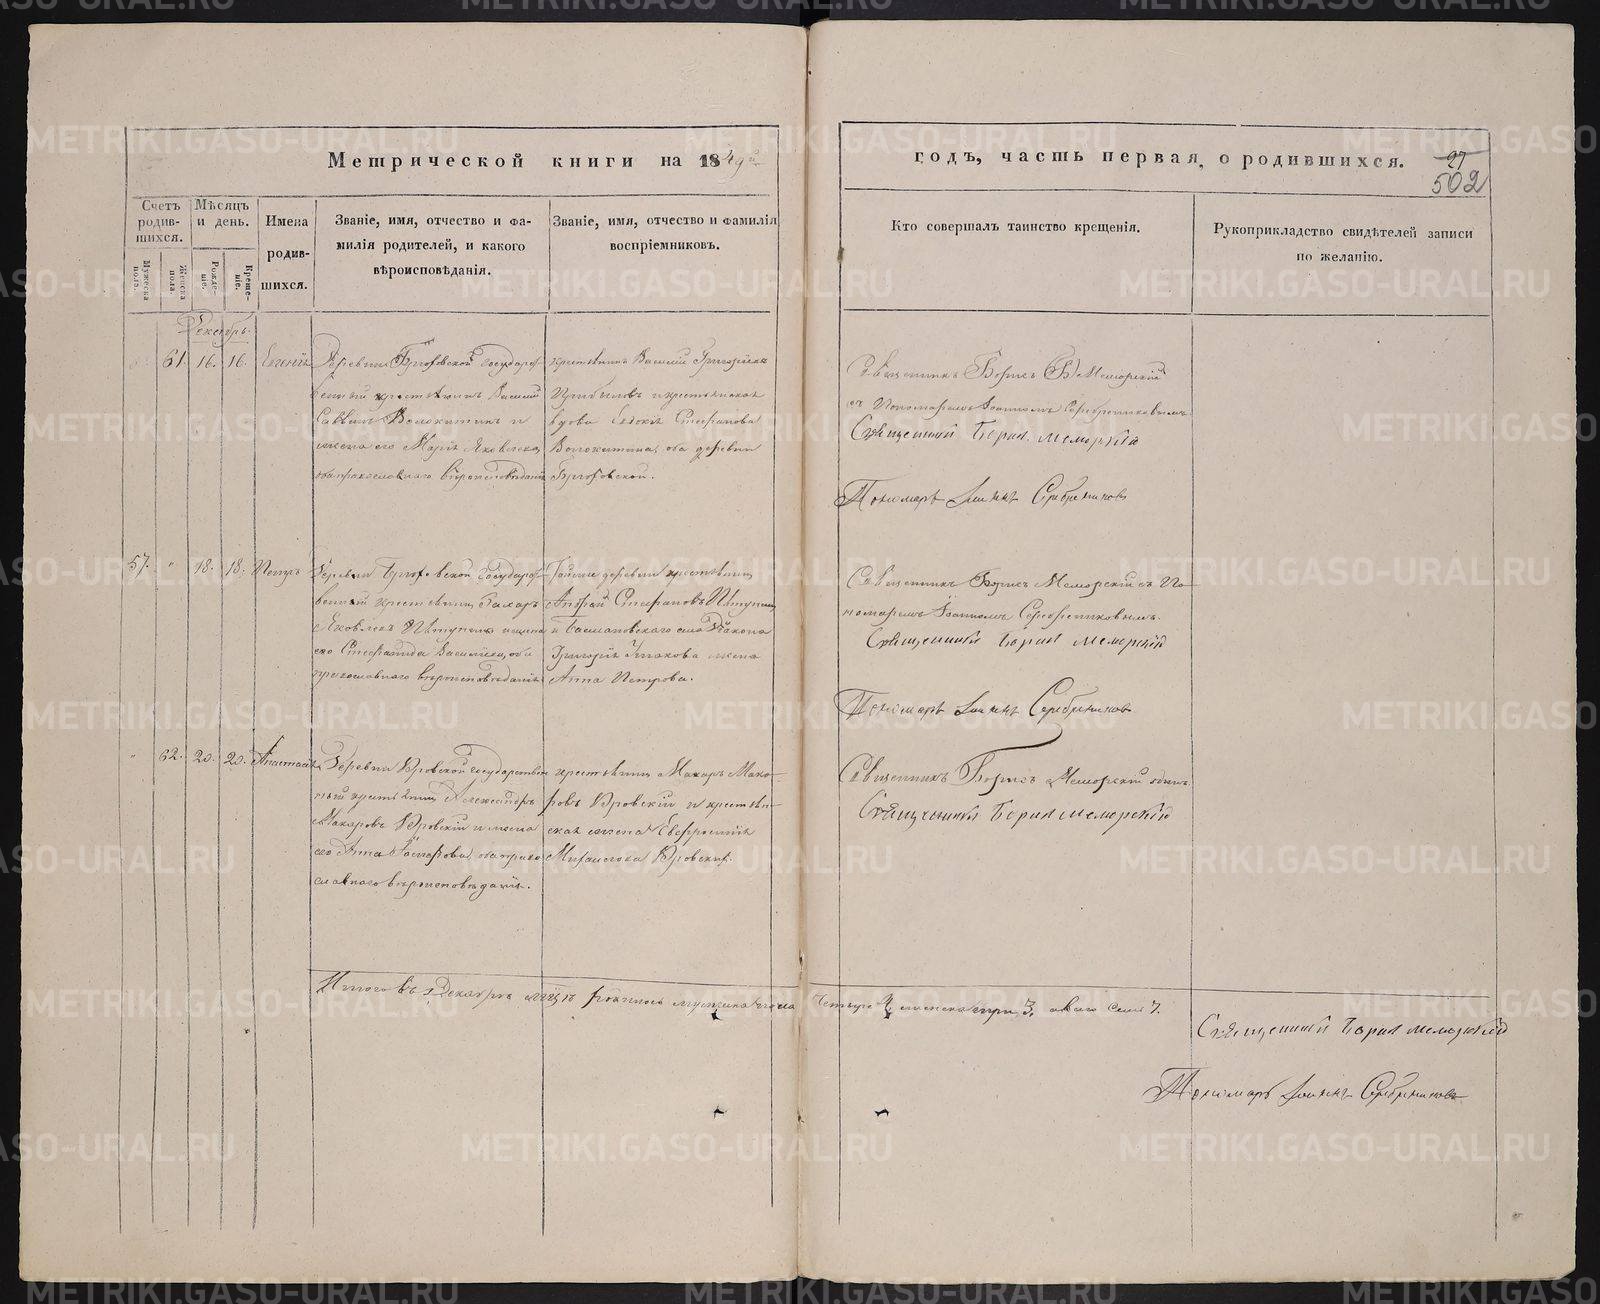 Метрической книги на 1849й
годъ, часть первая, о родившихся.
27
502
Счетъ родив-шихся.
Мѣсяцъ и день.
Имена родив-шихся.
Званіе, имя, отчество и фа-
милія родителей, и какого
вѣроисповѣданія.
Званіе, имя, отчество и фамилія
воспріемниковъ.
Кто совершалъ таинство крещенія.
Рукоприкладство свидѣтелей записи
по желанію.
Мужеска пола.
Женска пола.
Рожде-ніе.
Креще-ніе.
Декабрь.
61. 16. 16. Евгенія
государст-
венный крестьянинъ Василий
Саввинъ Волокитинъ и
жена его Марія Яковлева,
оба православнаго вѣроисповѣданія
крестьянинъ Василий Григорьевъ
и крестьянская
вдова Евдокія Стефанова
Волокитина, оба деревни
Священникъ Борисъ Меморский
съ Пономаремъ Іоанномъ Серебрениковымъ.
Священникъ Борисъ Меморский
Пономарь Іоаннъ Серебрениковъ
57. " 18. 18. Петръ
Деревни государст-
венный крестьянинъ Захаръ
Яковлевъ и жена
его Стефанида Васильева, оба
православнаго вѣроисповѣданія
Тойже деревни крестьянинъ
Андрей Стефановъ
и села Дьякона
Григорія жена
Анна Петрова.
Священникъ Борисъ Меморский съ По-
номаремъ Іоанномъ Серебрениковымъ.
Священникъ Борисъ Меморский
Пономарь Іоаннъ Серебрениковъ
" 62. 20. 20. Анастасія
Деревни Юровской государствен-
ный крестьянинъ Александръ
Макаровъ Юровский и жена
его Анна оба право-
славнаго вѣроисповѣданія.
крестьянинъ Макаръ Мака-
ровъ Юровский и крестьян-
ская жена Евфросинія
Михайлова Юровских.
Священникъ Борисъ Меморский одинъ.
Священникъ Борисъ Меморский
Итого въ Декабрѣ мѣсяцѣ родилось мужеска пола четыре 4, женска три 3, а всего семь 7.
Священникъ Борисъ Меморский
Пономарь Іоаннъ Серебрениковъ
METRIKI.GASO-URAL.RU